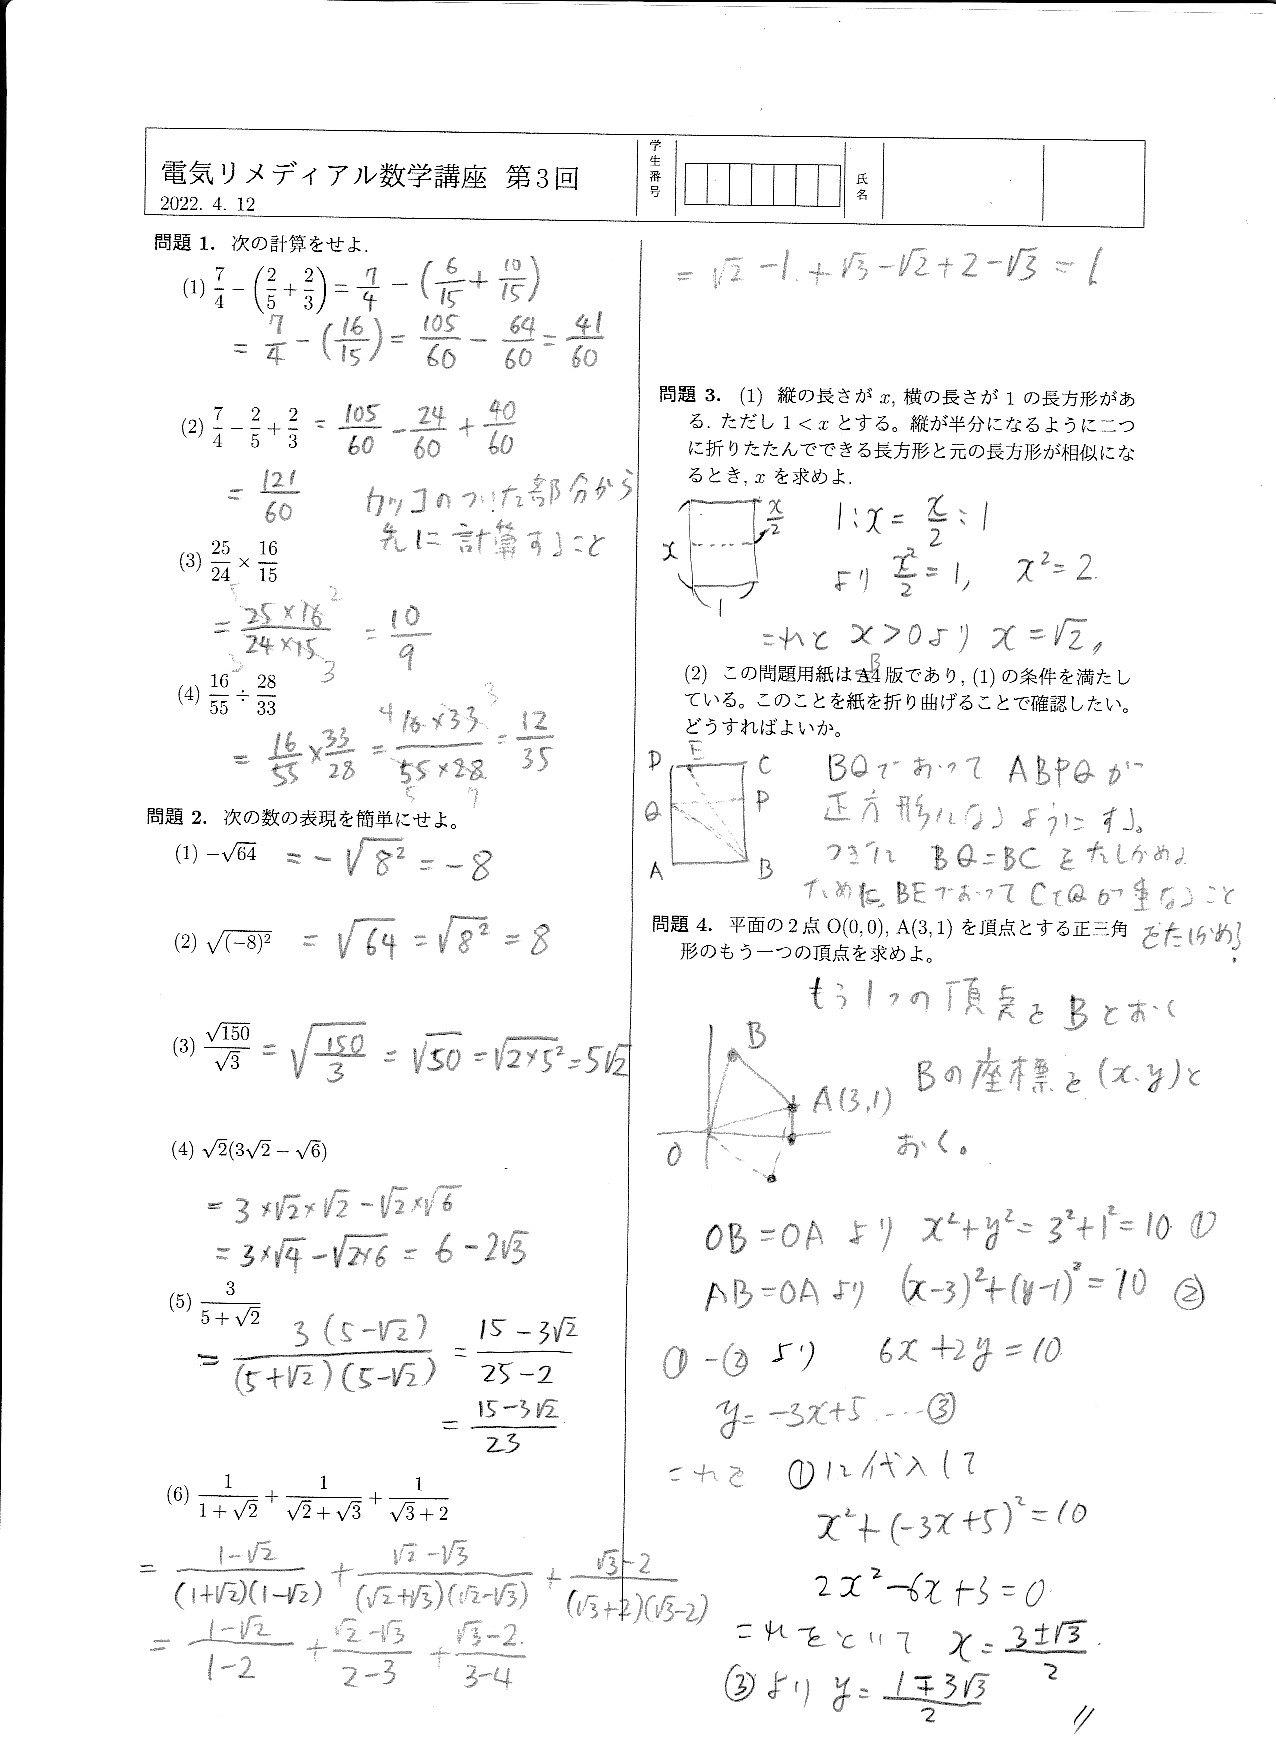 電気リメディアル数学講座 第3回
2022. 4. 12
学生番号
氏名
問題 1. 次の計算をせよ.
(1) 7/4 − (2/5 + 2/3) = 7/4 − (6/15 + 10/15)
= 7/4 − (16/15) = 105/60 − 64/60 = 41/60
(2) 7/4 − 2/5 + 2/3 = 105/60 − 24/60 + 40/60
= 121/60 カッコのついた部分から
先に計算すること
(3) 25/24 × 16/15
= 25×16/24×15 = 10/9
5 2 3 3
(4) 16/55 ÷ 28/33
= 16/55 × 33/28 = 16×33/55×28 = 12/35
4 3 5 7
問題 2. 次の数の表現を簡単にせよ。
(1) −√64 = −√8² = −8
(2) √(−8)² = √64 = √8² = 8
(3) √150/√3 = √(150/3) = √50 = √(2×5²) = 5√2
(4) √2(3√2 − √6)
= 3×√2×√2 − √2×√6
= 3×√4 − √(2×6) = 6 − 2√3
(5) 3/(5+√2)
= 3(5−√2)/(5+√2)(5−√2) = (15−3√2)/(25−2)
= (15−3√2)/23
(6) 1/(1+√2) + 1/(√2+√3) + 1/(√3+2)
= (1−√2)/(1+√2)(1−√2) + (√2−√3)/(√2+√3)(√2−√3) + (√3−2)/(√3+2)(√3−2)
= (1−√2)/(1−2) + (√2−√3)/(2−3) + (√3−2)/(3−4)
= √2 − 1 + √3 − √2 + 2 − √3 = 1
問題 3. (1) 縦の長さが x, 横の長さが 1 の長方形があ
る. ただし 1 < x とする。縦が半分になるように二つ
に折りたたんでできる長方形と元の長方形が相似にな
るとき, x を求めよ.
x/2
x
1
1:x = x/2:1
より x²/2 = 1, x² = 2
これと x>0より x=√2,
(2) この問題用紙はB4版であり, (1) の条件を満たし
ている。このことを紙を折り曲げることで確認したい。
どうすればよいか。
D E C
Q P
A B
BQでおって ABPQが
正方形になるようにする。
つぎに BQ=BC をたしかめる
ために BEでおって CとQが重なること
をたしかめる
問題 4. 平面の2点 O(0,0), A(3,1) を頂点とする正三角
形のもう一つの頂点を求めよ。
もう1つの頂点をBとおく
B
A(3,1)
O
Bの座標を(x.y)と
おく。
OB=OA より x²+y²=3²+1²=10 ①
AB=OA より (x−3)²+(y−1)²=10 ②
①−② より 6x+2y=10
y=−3x+5 …③
これを ①に代入して
x²+(−3x+5)²=10
2x²−6x+3=0
これをといて x=(3±√3)/2
③より y=(1∓3√3)/2